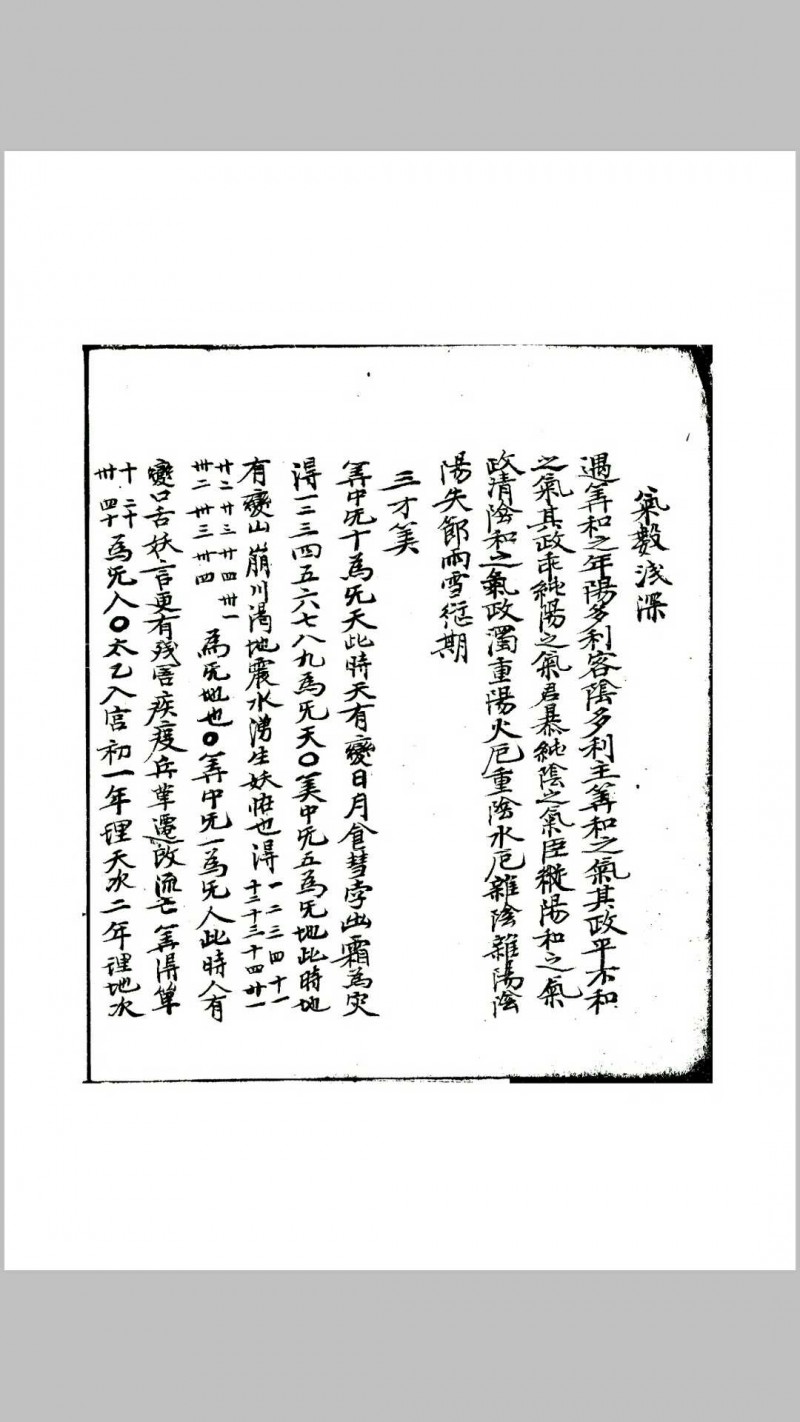 氣數浅深
遇筭和之年陽多利客陰多利主筭和之氣其政平不和
之氣其政乖純陽之氣君暴純陰之氣臣縱陽和之氣
政清陰和之氣政濁重陽火厄重陰水厄雜陰雜陽陰
陽失節雨雪愆期
三才筭
筭中旡十為旡天此時天有變日月食彗孛出霜為灾
得一二三四五六七八九為旡天〇筭中旡五為旡地此時地
有變山崩川渴地震水湧生妖恠也得一二三四十一
十二十三十四廿一
廿二廿三廿四卅一
卅二卅三卅四
為旡地也〇筭中旡一為旡人此時人有
變口舌妖言更有残害疾疫兵革遷改流亡筭得单
十二十
卅四十
為旡人〇太乙入宮初一年理天次二年理地次